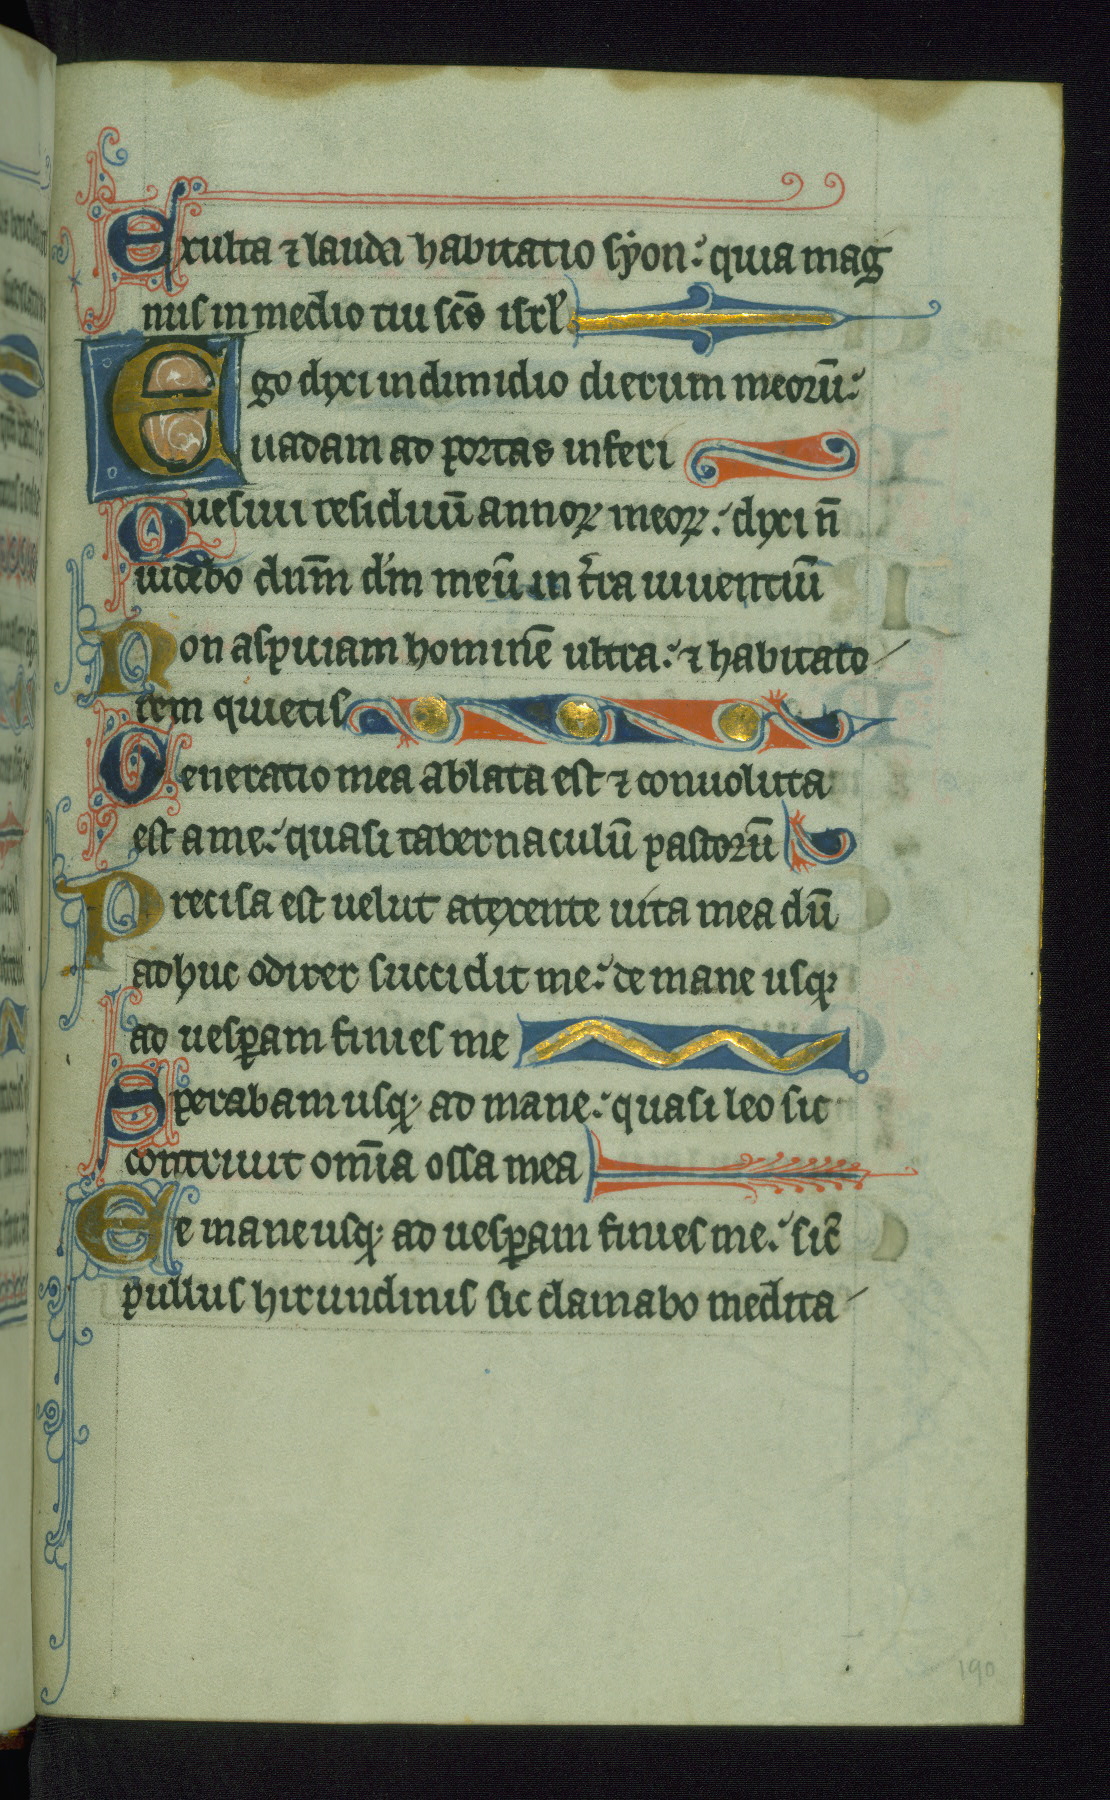 Exulta ⁊ lauda habitatio syon: quia mag
nus in medio tui scs̄ isrl̄
Ego dyxi in dimidio dierum meorū:
uadam ad portas inferi
Quesiui residuū annoꝝ meoꝝ: dyxi n̄
uidebo dn̄m dm̄ meū in tr̄a uiuentiū
Non aspiciam hominē ultra: ⁊ habitato
rem quietis
Generatio mea ablata est ⁊ conuoluta
est a me: quasi tabernaculū pastorū
Precisa est uelut a texente uita mea dū
adhuc ordirer succidit me: de mane usqꝫ
ad uesꝑam finies me
Sperabam usqꝫ ad mane: quasi leo sic
contriuit om̄ia ossa mea
De mane usqꝫ ad uesꝑam finies me: sic̄
pullus hirundinis sic clamabo medita
190